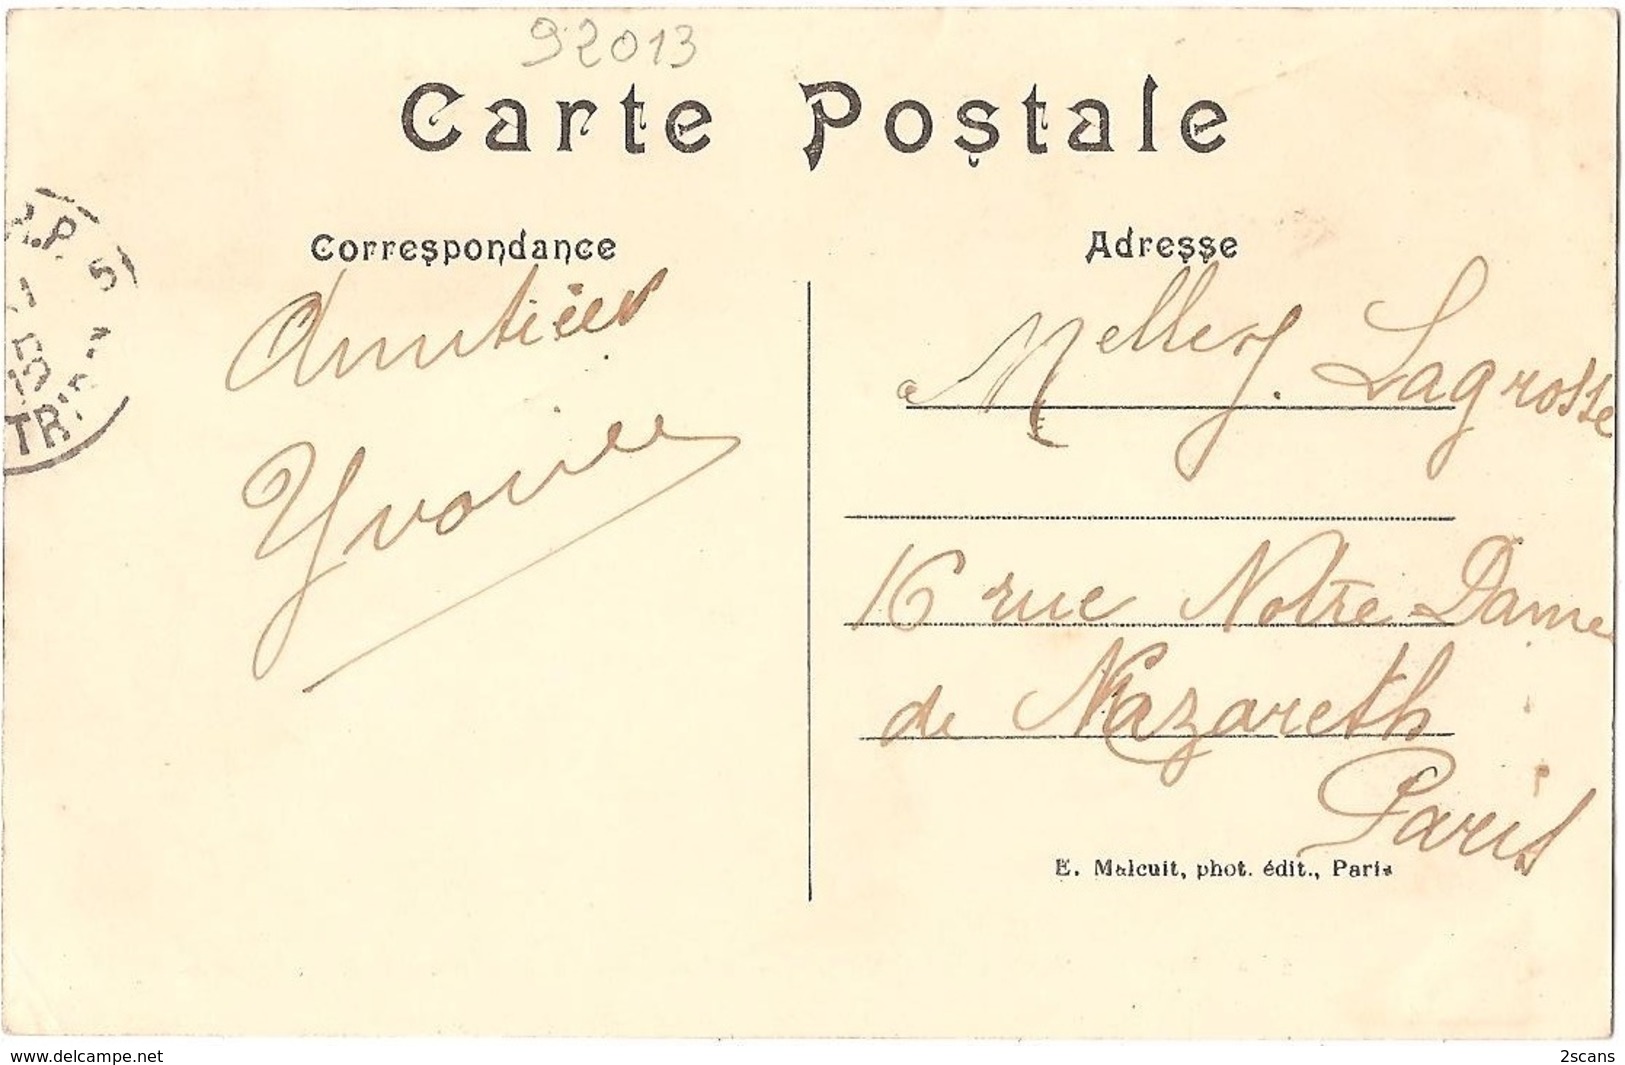 92013
Carte Postale
Correspondance
Amitiés
Yvonne
Adresse
a Melle J. Lagrosse
16 rue Notre Dame
de Nazareth
Paris
E. Malcuit, phot. édit., Paris
5
TRI
www.delcampe.net
2scans